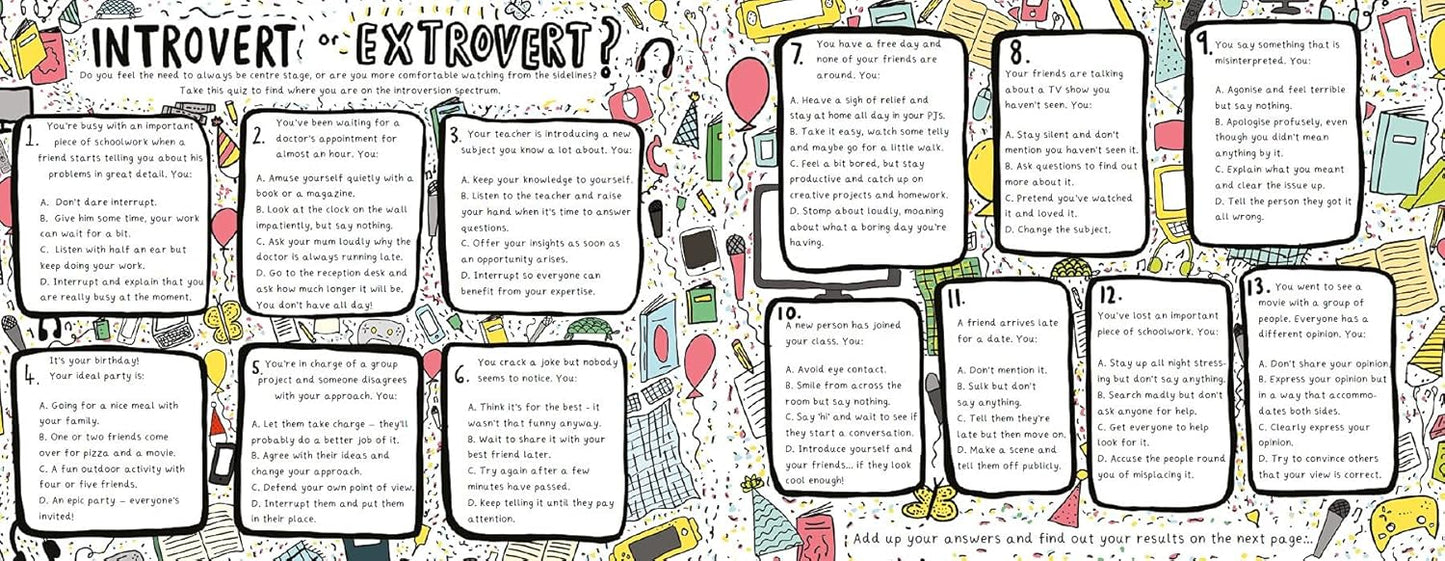 INTROVERT or EXTROVERT?
Do you feel the need to always be centre stage, or are you more comfortable watching from the sidelines?
Take this quiz to find where you are on the introversion spectrum.
1. You're busy with an important
piece of schoolwork when a
friend starts telling you about his
problems in great detail. You:
A. Don't dare interrupt.
B. Give him some time, your work
can wait for a bit.
C. Listen with half an ear but
keep doing your work.
D. Interrupt and explain that you
are really busy at the moment.
2. You've been waiting for a
doctor's appointment for
almost an hour. You:
A. Amuse yourself quietly with a
book or a magazine.
B. Look at the clock on the wall
impatiently, but say nothing.
C. Ask your mum loudly why the
doctor is always running late.
D. Go to the reception desk and
ask how much longer it will be.
You don't have all day!
3. Your teacher is introducing a new
subject you know a lot about. You:
A. Keep your knowledge to yourself.
B. Listen to the teacher and raise
your hand when it's time to answer
questions.
C. Offer your insights as soon as
an opportunity arises.
D. Interrupt so everyone can
benefit from your expertise.
4. It's your birthday!
Your ideal party is:
A. Going for a nice meal with
your family.
B. One or two friends come
over for pizza and a movie.
C. A fun outdoor activity with
four or five friends.
D. An epic party – everyone's
invited!
5. You're in charge of a group
project and someone disagrees
with your approach. You:
A. Let them take charge – they'll
probably do a better job of it.
B. Agree with their ideas and
change your approach.
C. Defend your own point of view.
D. Interrupt them and put them
in their place.
6. You crack a joke but nobody
seems to notice. You:
A. Think it's for the best - it
wasn't that funny anyway.
B. Wait to share it with your
best friend later.
C. Try again after a few
minutes have passed.
D. Keep telling it until they pay
attention.
7. You have a free day and
none of your friends are
around. You:
A. Heave a sigh of relief and
stay at home all day in your PJs.
B. Take it easy, watch some telly
and maybe go for a little walk.
C. Feel a bit bored, but stay
productive and catch up on
creative projects and homework.
D. Stomp about loudly, moaning
about what a boring day you're
having.
8.
Your friends are talking
about a TV show you
haven't seen. You:
A. Stay silent and don't
mention you haven't seen it.
B. Ask questions to find out
more about it.
C. Pretend you've watched
it and loved it.
D. Change the subject.
9. You say something that is
misinterpreted. You:
A. Agonise and feel terrible
but say nothing.
B. Apologise profusely, even
though you didn't mean
anything by it.
C. Explain what you meant
and clear the issue up.
D. Tell the person they got it
all wrong.
10.
A new person has joined
your class. You:
A. Avoid eye contact.
B. Smile from across the
room but say nothing.
C. Say 'hi' and wait to see if
they start a conversation.
D. Introduce yourself and
your friends... if they look
cool enough!
11.
A friend arrives late
for a date. You:
A. Don't mention it.
B. Sulk but don't
say anything.
C. Tell them they're
late but then move on.
D. Make a scene and
tell them off publicly.
12.
You've lost an important
piece of schoolwork. You:
A. Stay up all night stress-
ing but don't say anything.
B. Search madly but don't
ask anyone for help.
C. Get everyone to help
look for it.
D. Accuse the people round
you of misplacing it.
13. You went to see a
movie with a group of
people. Everyone has a
different opinion. You:
A. Don't share your opinion.
B. Express your opinion but
in a way that accommo-
dates both sides.
C. Clearly express your
opinion.
D. Try to convince others
that your view is correct.
Add up your answers and find out your results on the next page...